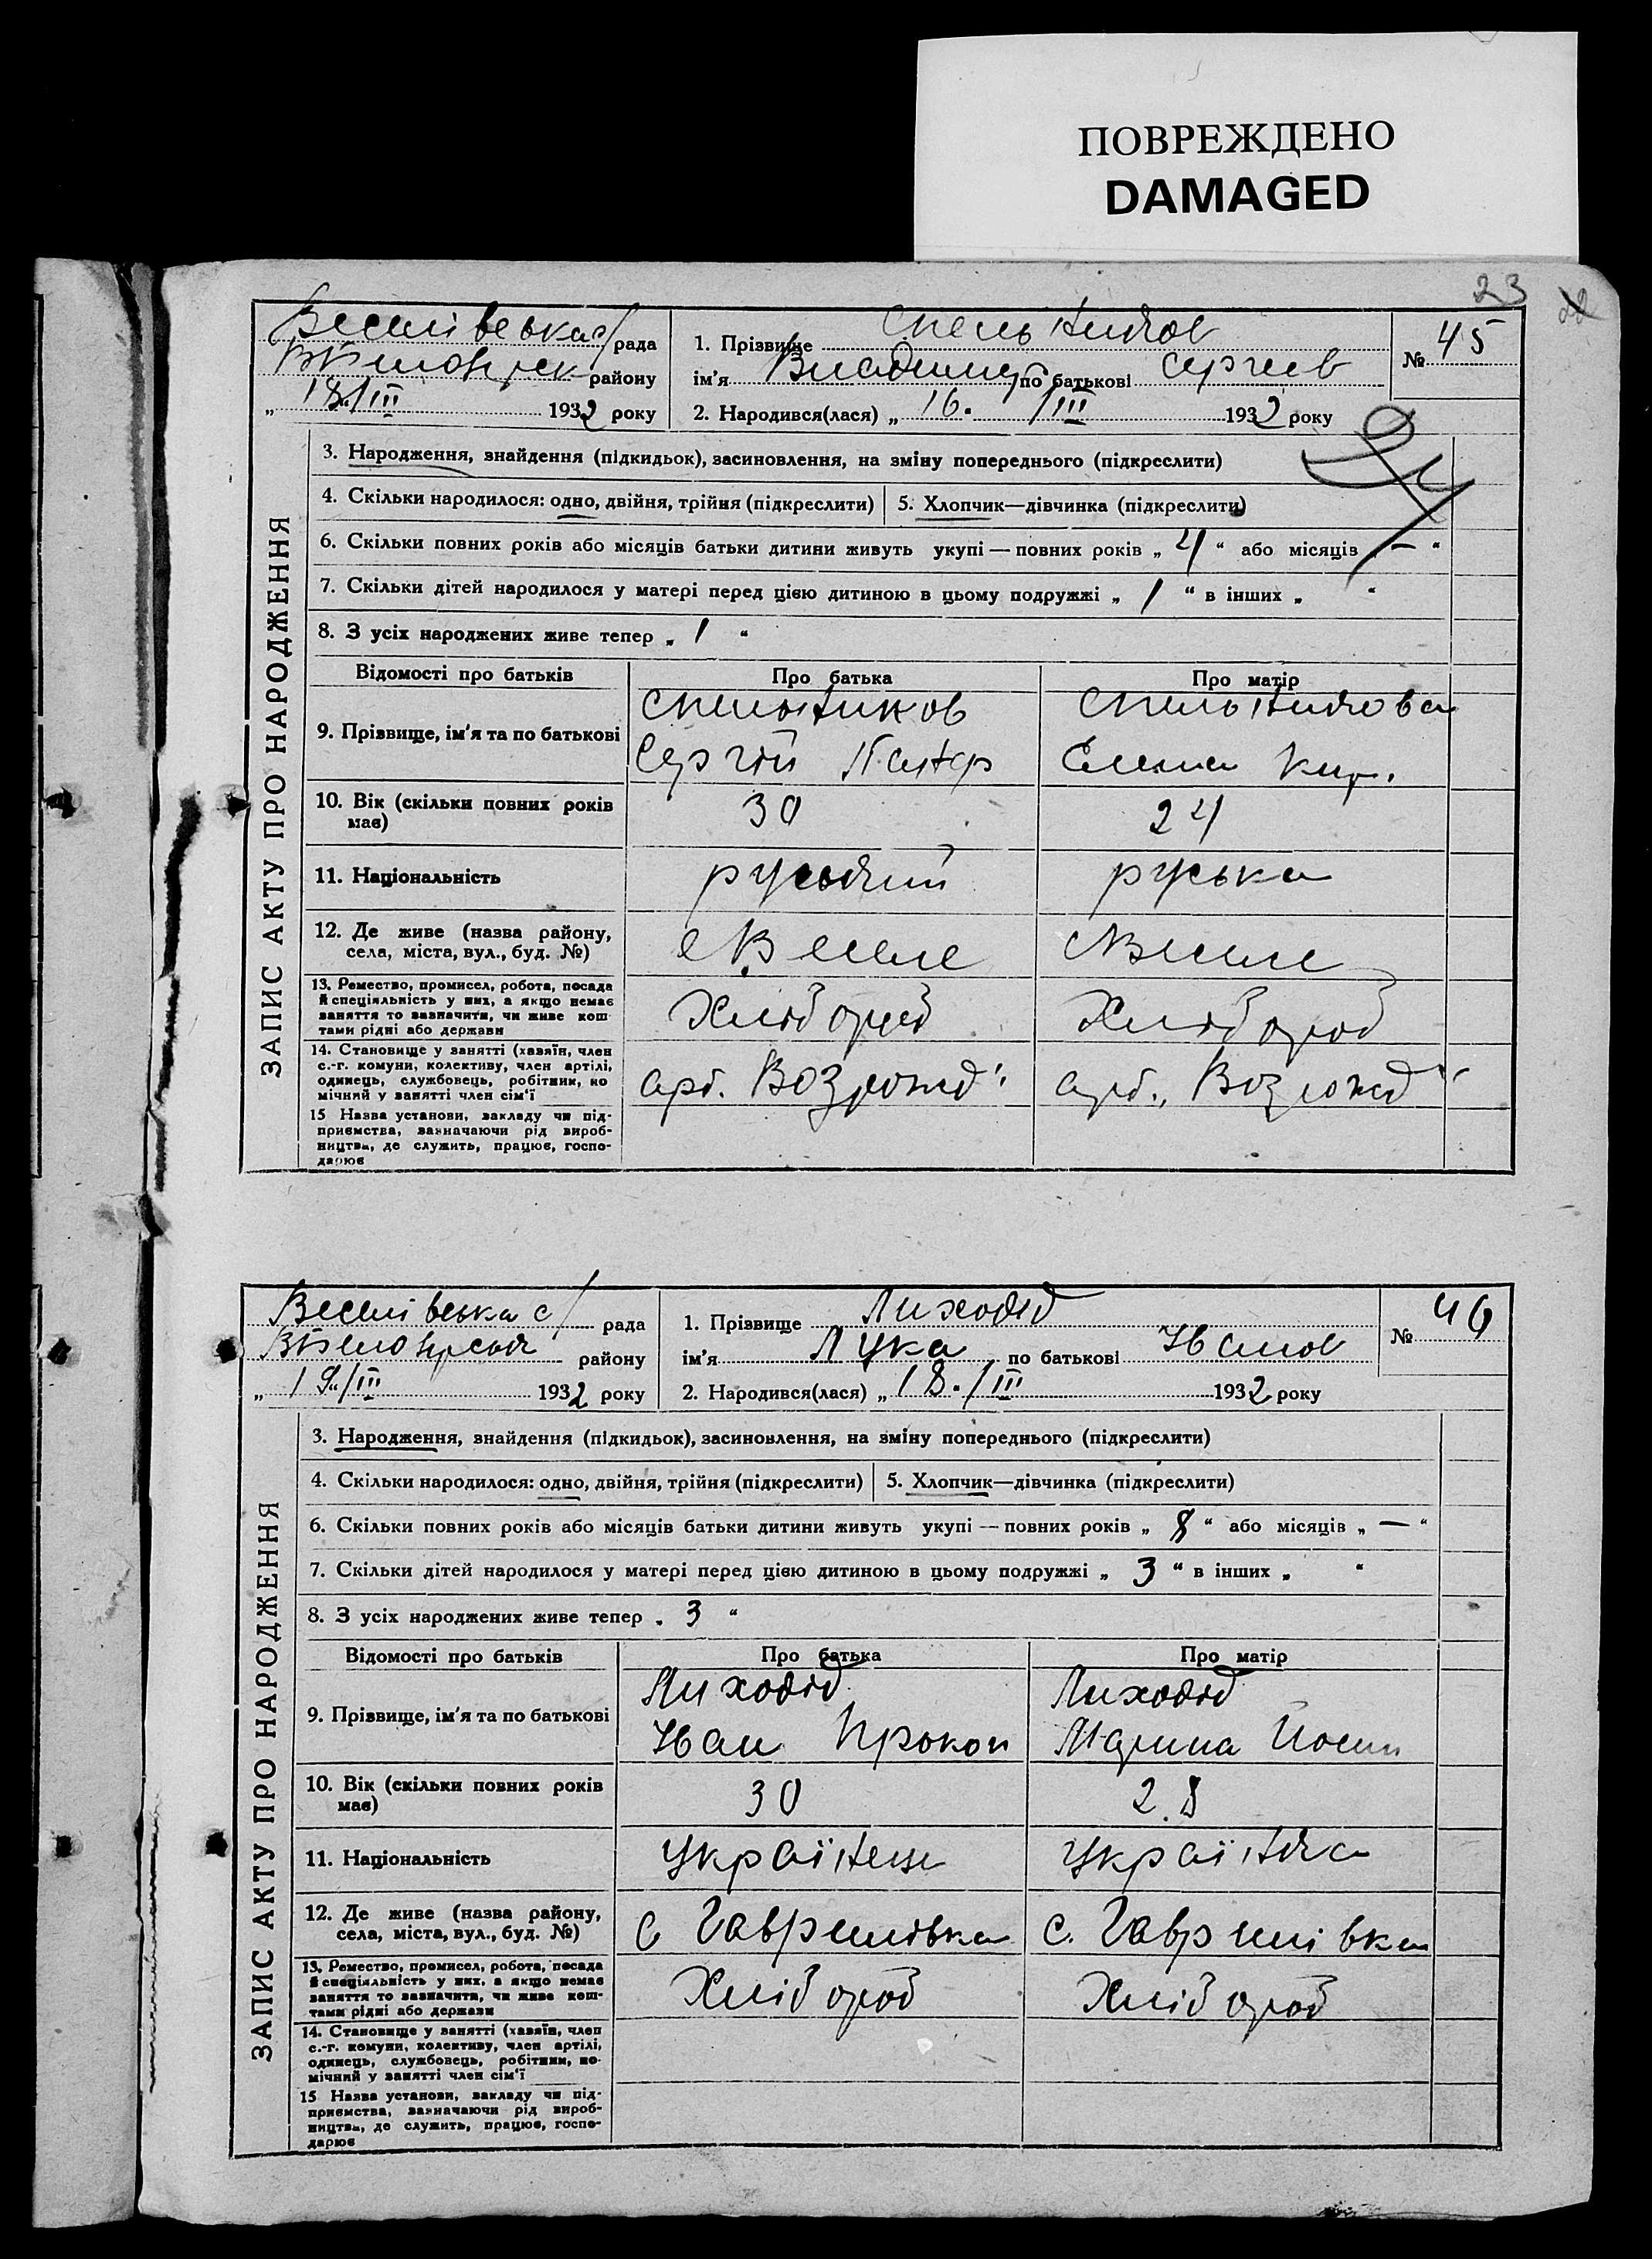 ПОВРЕЖДЕНО
DAMAGED
23
Веселівська с/рада
1. Прізвище
№ 45
району
ім'я Владимир по батькові Сергеев
„ 18/III 1932 року
2. Народився(лася) „ 16. /III 1932 року
3. Народження, знайдення (підкидьок), засиновлення, на зміну попереднього (підкреслити)
4. Скільки народилося: одно, двійня, трійня (підкреслити) 5. Хлопчик—дівчинка (підкреслити)
6. Скільки повних років або місяців батьки дитини живуть укупі — повних років „ 4 “ або місяців „ — “
7. Скільки дітей народилося у матері перед цією дитиною в цьому подружжі „ 1 “ в інших „ “
8. З усіх народжених живе тепер „ 1 “
ЗАПИС АКТУ ПРО НАРОДЖЕННЯ
Відомості про батьків Про батька Про матір
9. Прізвище, ім'я та по батькові
Сергій Елена Кир.
10. Вік (скільки повних років має) 30 24
11. Національність руський руська
12. Де живе (назва району, села, міста, вул., буд. №) с Веселе с Веселе
13. Ремество, промисел, робота, посада й спеціяльність у них, а якщо немає заняття то зазначити, чи живе коштами рідні або держави
Хлібороб Хлібороб
14. Становище у занятті (хазяїн, член с.-г. комуни, колективу, член артілі, одинець, службовець, робітник, помічний у занятті член сім'ї
арт. Возрожд" арт. „Возрожд"
15 Назва установи, закладу чи підприємства, зазначаючи рід виробництва, де служить, працює, господарює
Веселівська с/рада
1. Прізвище Лиходід
№ 46
району
ім'я Лука по батькові Иванов
„ 19/III 1932 року
2. Народився(лася) „ 18. /III 1932 року
3. Народження, знайдення (підкидьок), засиновлення, на зміну попереднього (підкреслити)
4. Скільки народилося: одно, двійня, трійня (підкреслити) 5. Хлопчик—дівчинка (підкреслити)
6. Скільки повних років або місяців батьки дитини живуть укупі — повних років „ 8 “ або місяців „ — “
7. Скільки дітей народилося у матері перед цією дитиною в цьому подружжі „ 3 “ в інших „ “
8. З усіх народжених живе тепер „ 3 “
ЗАПИС АКТУ ПРО НАРОДЖЕННЯ
Відомості про батьків Про батька Про матір
Лиходід Лиходід
9. Прізвище, ім'я та по батькові
Иван Прокоп Марина Йосип
10. Вік (скільки повних років має) 30 28
11. Національність українец українка
12. Де живе (назва району, села, міста, вул., буд. №) с Гаврилівка с. Гаврилівка
13. Ремество, промисел, робота, посада й спеціяльність у них, а якщо немає заняття то зазначити, чи живе коштами рідні або держави
Хлібороб Хлібороб
14. Становище у занятті (хазяїн, член с.-г. комуни, колективу, член артілі, одинець, службовець, робітник, помічний у занятті член сім'ї
15 Назва установи, закладу чи підприємства, зазначаючи рід виробництва, де служить, працює, господарює